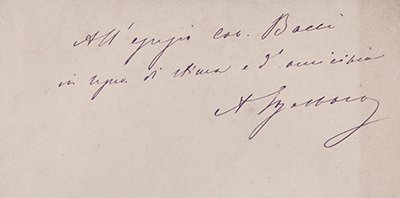 All' egregio cav. Bacci
in segno di stima e d' amicizia
A